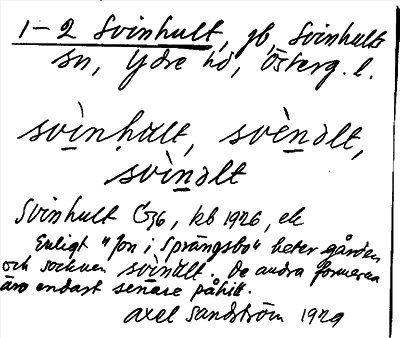 1-2 Svinhult, gb, Svinhults
sn, Ydre hd, Österg. l.
svìnhalt, svènalt,
svìnalt
Svinhult G36, kb 1926, ek
Enligt "Jon i Sprängsbo" heter gården
och socknen svìnalt. De andra formerna
äro endast senare påhitt.
Axel Sandström 1929